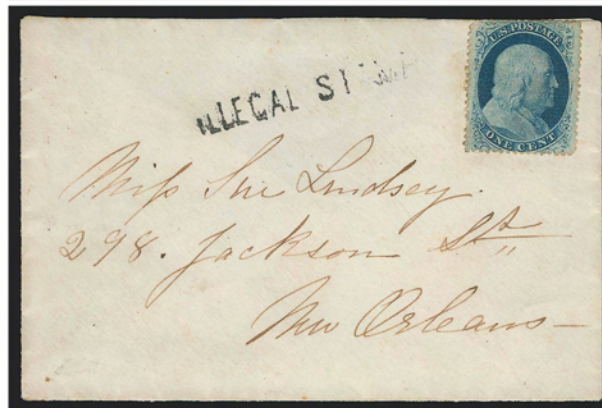 U.S. POSTAGE
ONE CENT
ILLEGAL STAMP
Miss Sue Lindsey.
298. Jackson St,,
New Orleans—